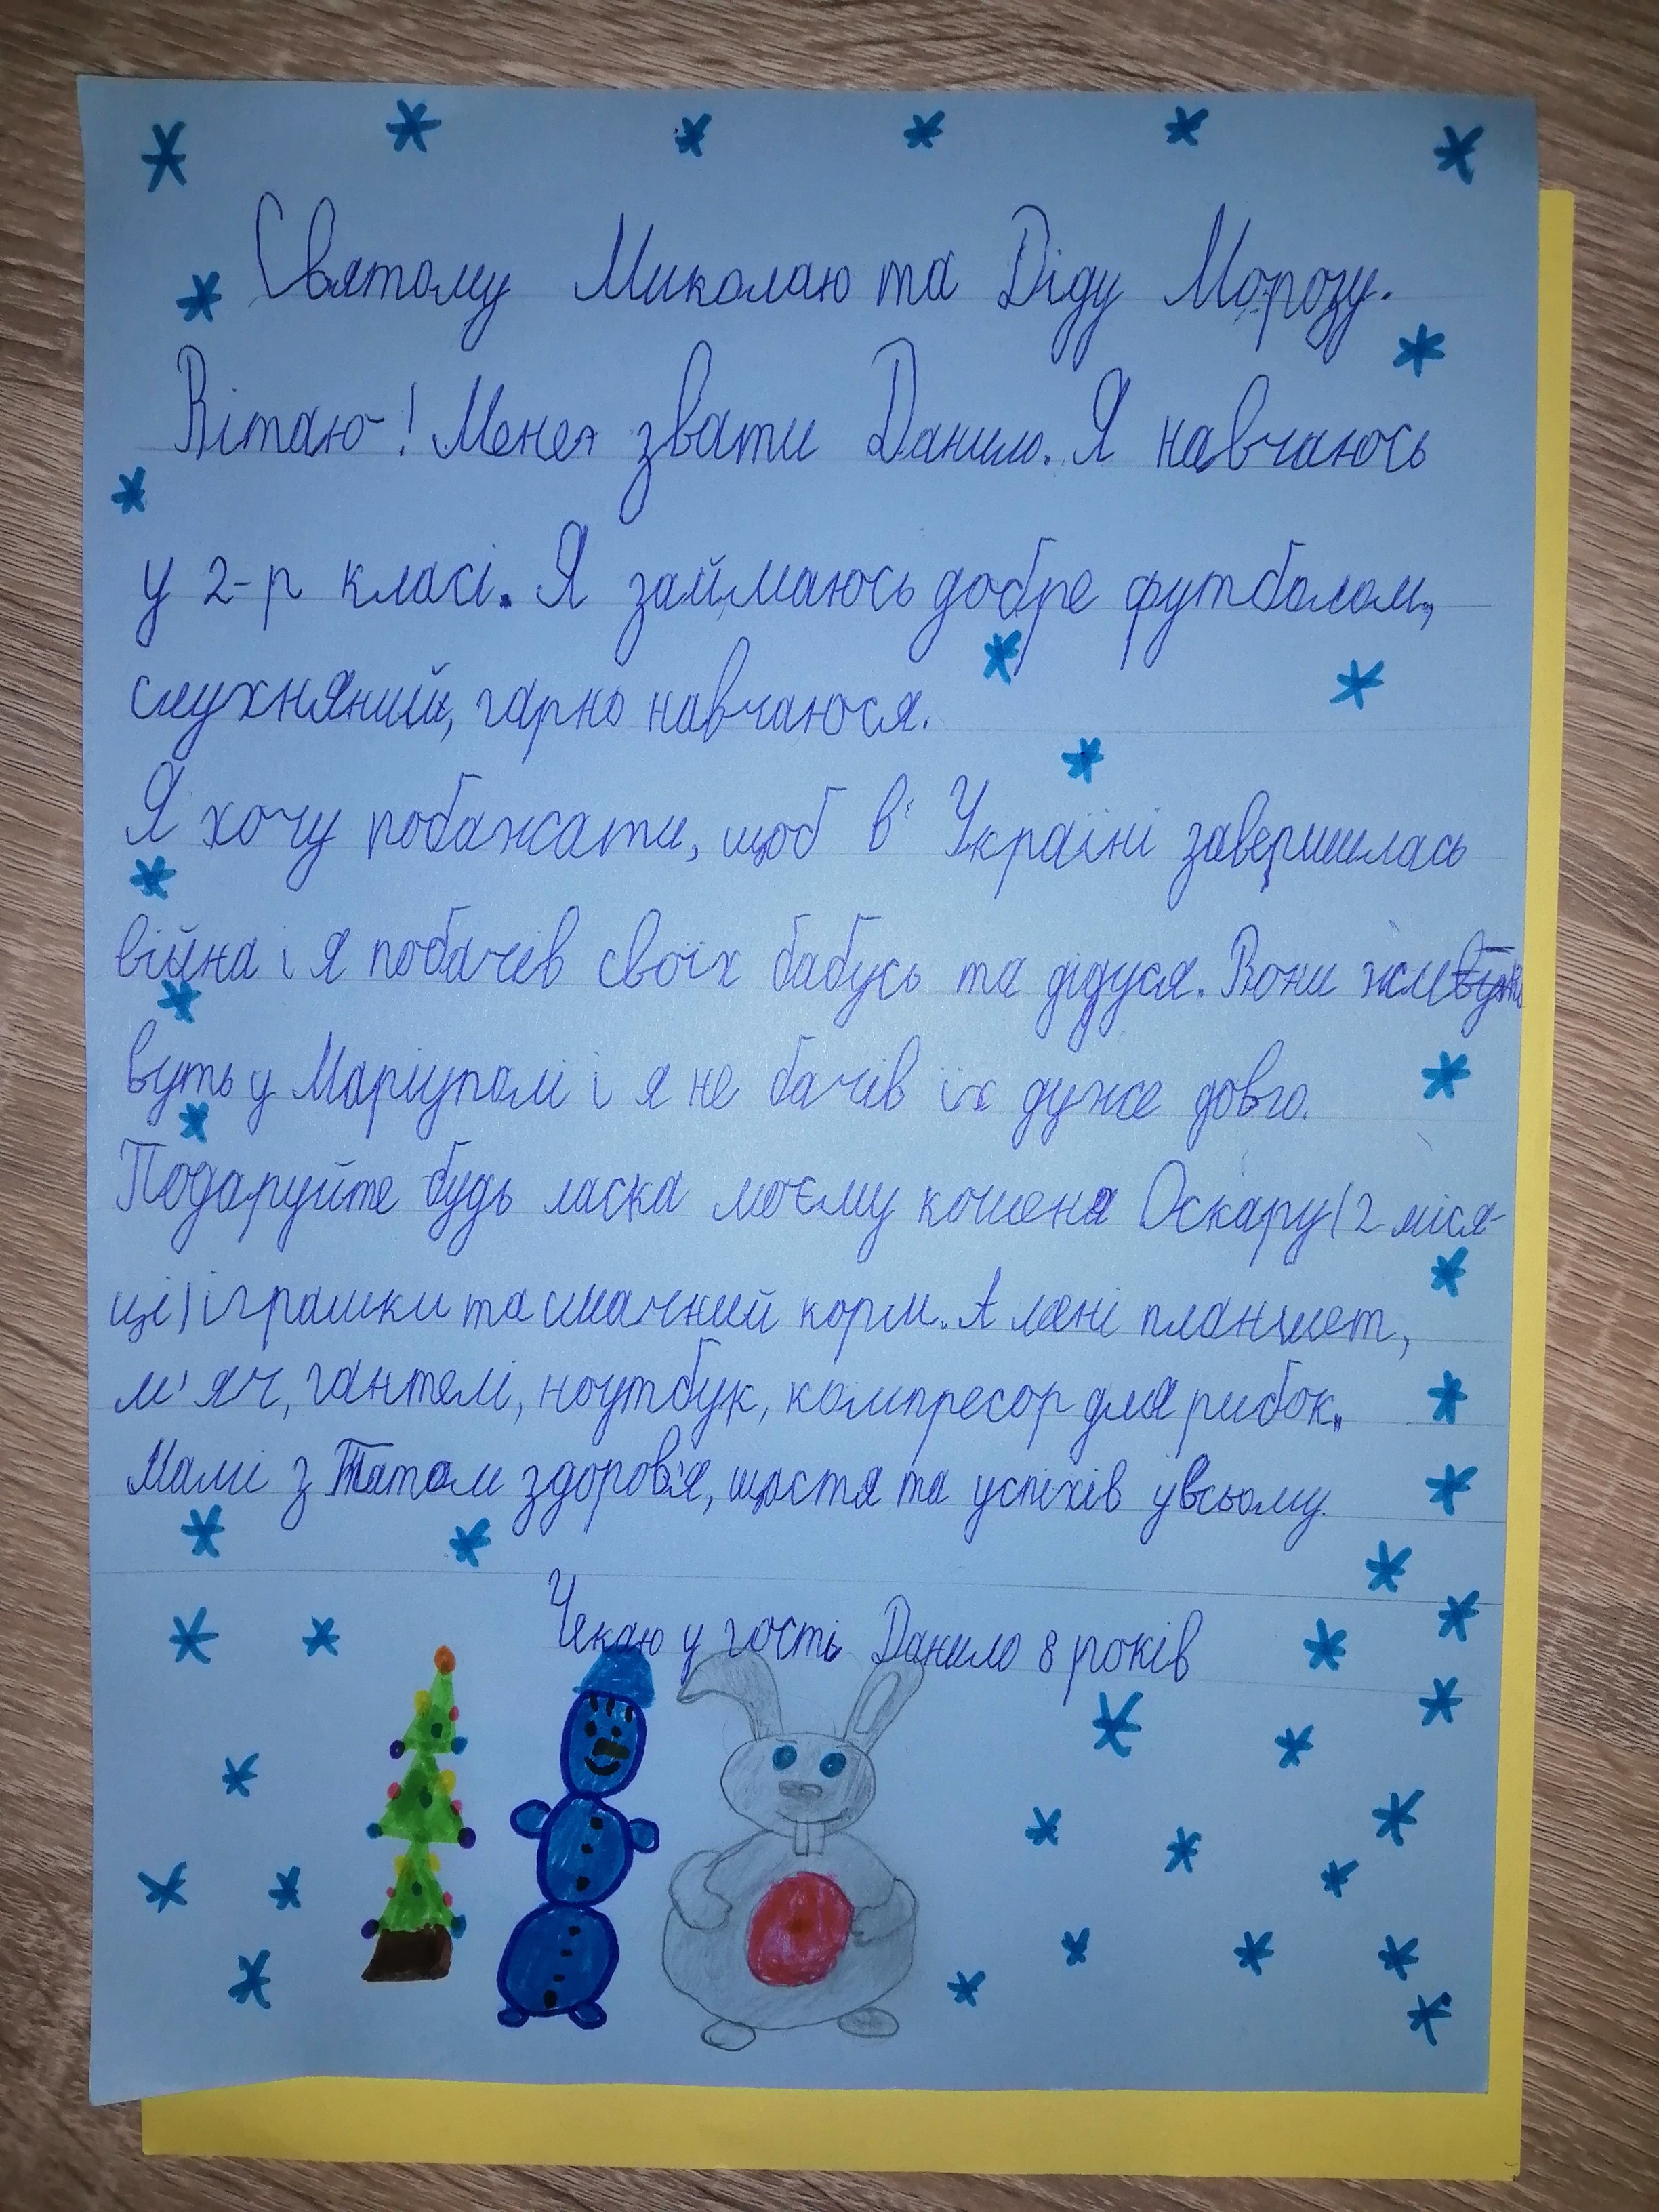 Святому Миколаю та Діду Морозу.
Вітаю! Менея звати Данило. Я навчаюсь
у 2-р класі. Я займаюсь добре футболом,
слухняний, гарно навчаюся.
Я хочу побажати, щоб в Україні завершилась
війна і я побачів своїх бабусь та дідуся. Вони жи
вуть у Маріуполі і я не бачів їх дуже довго.
Подаруйте будь ласка моєму кошеня Оскару (2 міся-
ці) іграшки та смачний корм. А мені планшет,
м'яч, гантелі, ноутбук, компресор для рибок.
Мамі з Татом здоров'я, щастя та успіхів увсьому.
Чекаю у гості Данило 8 років